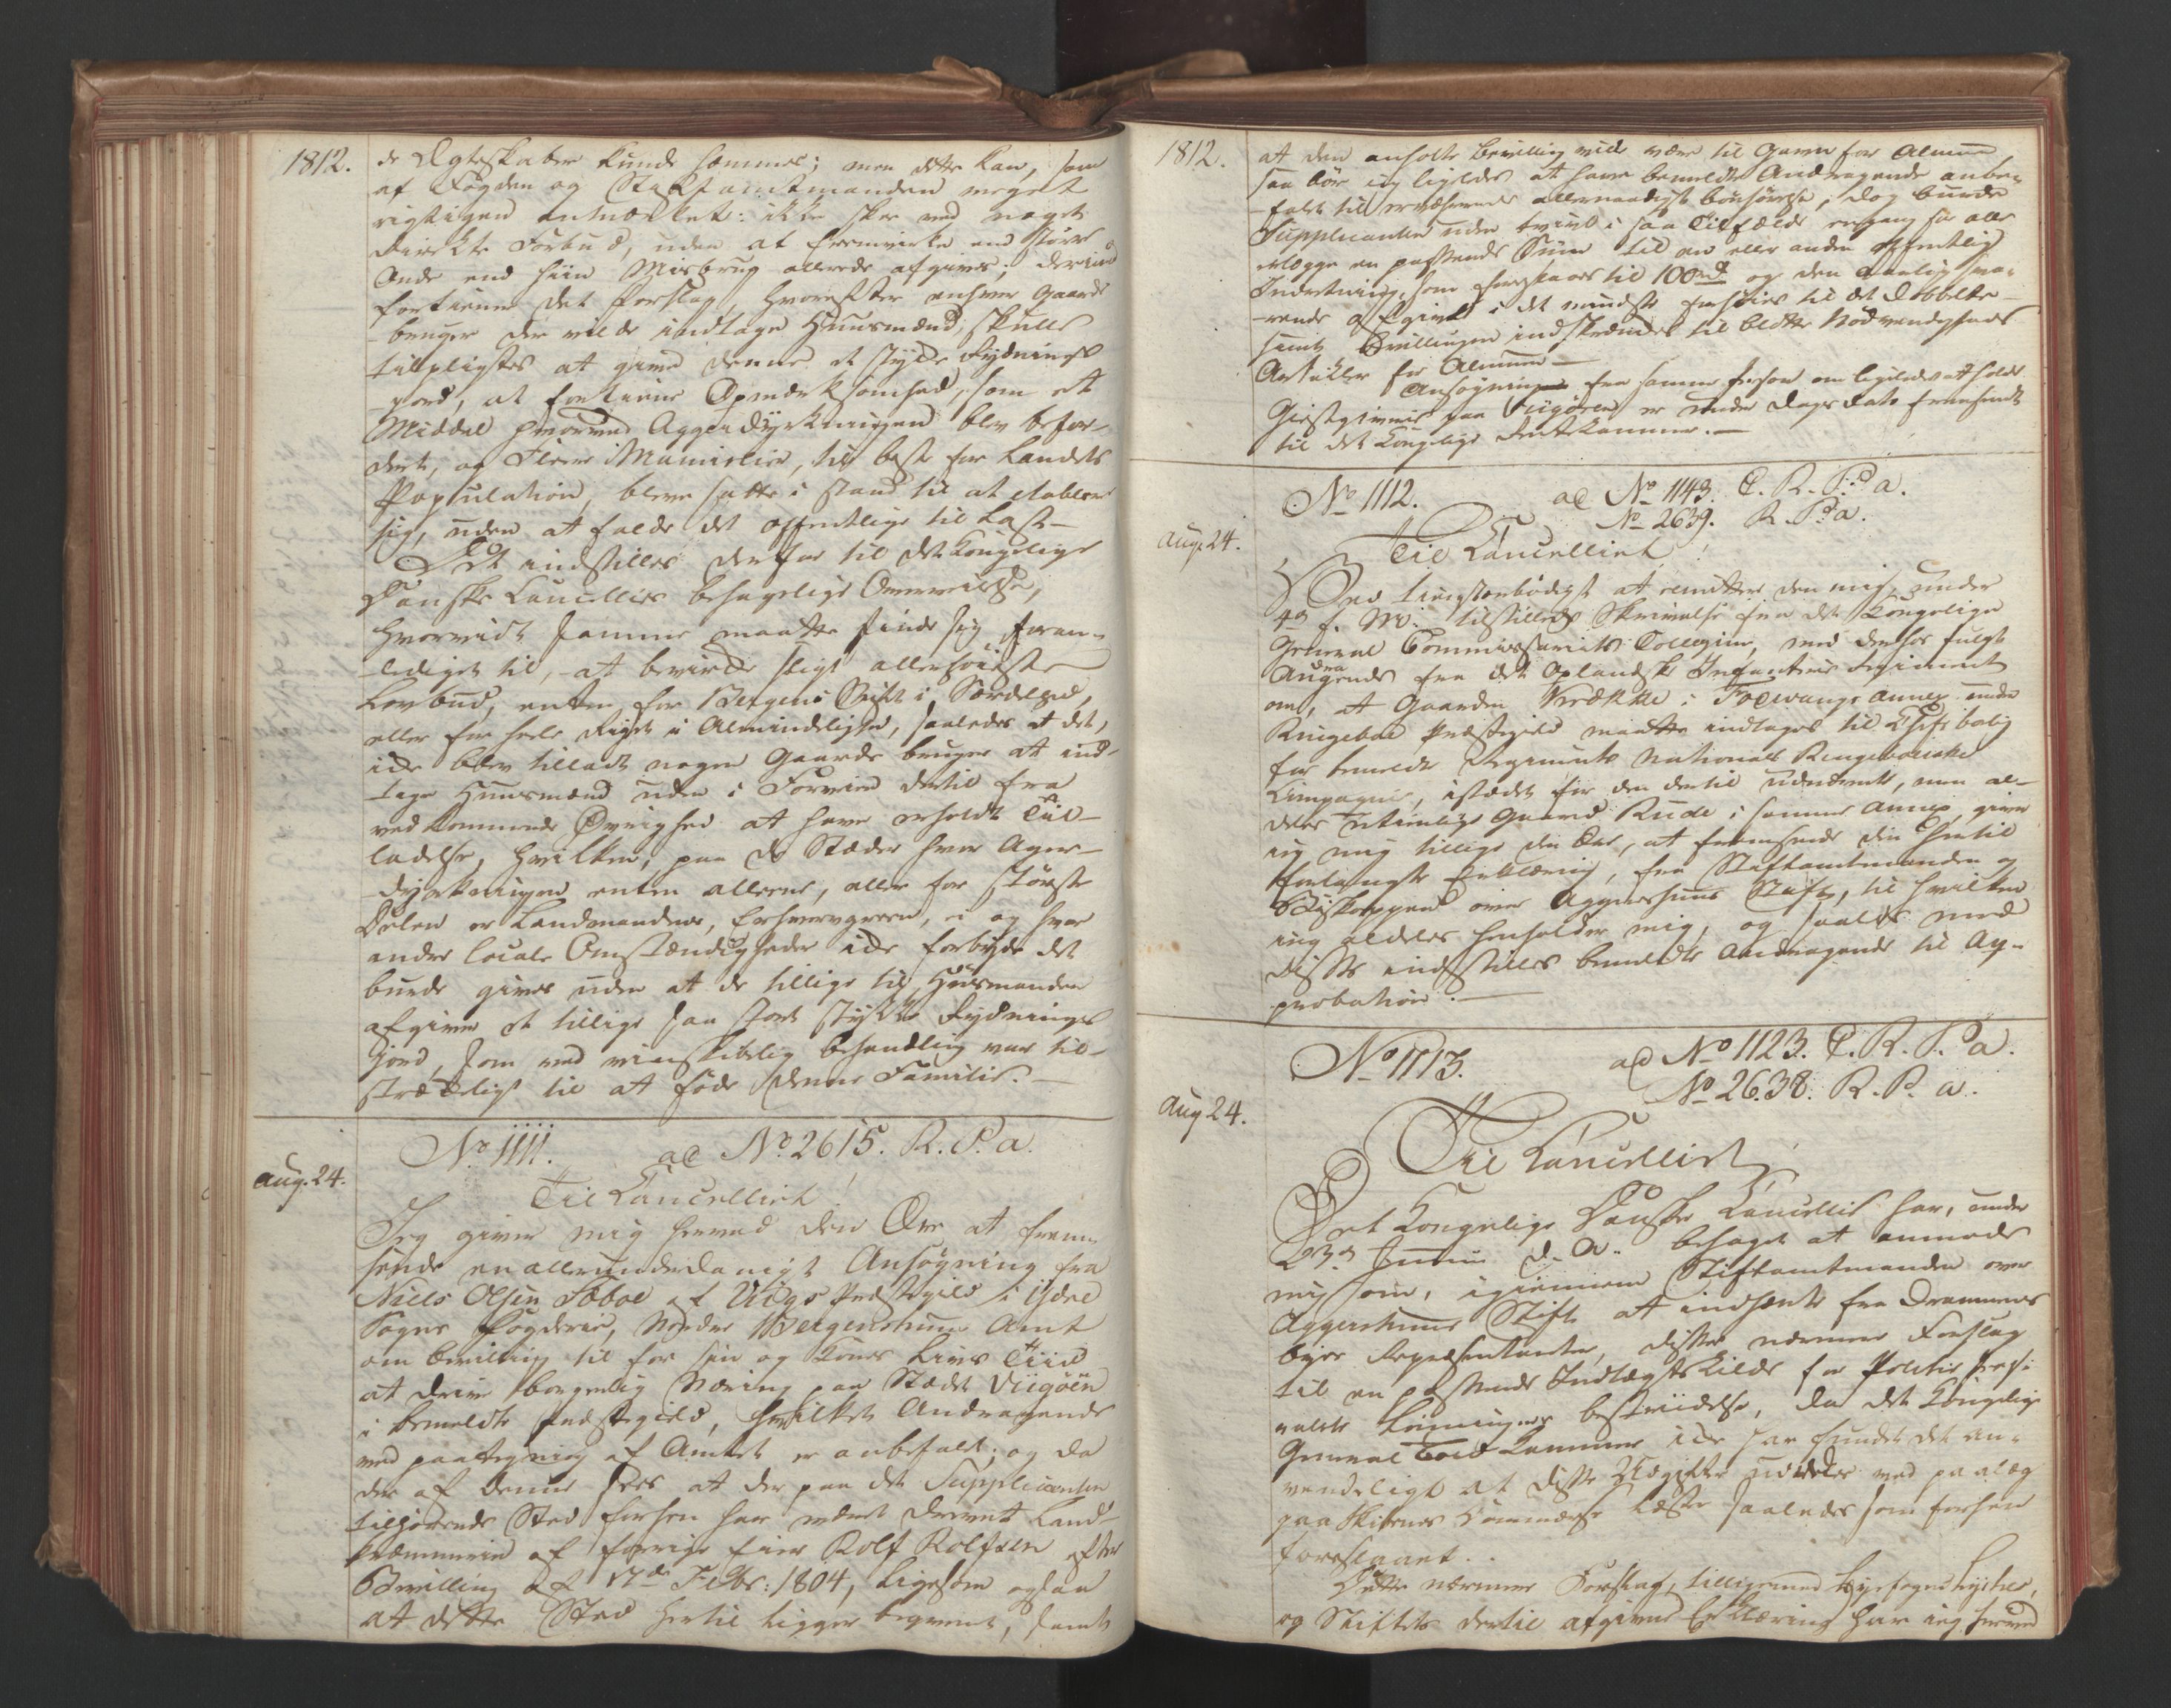 1812.
de Ægteskaber kunde hæmmes; men dette kan, som
af Fogden og Stiftamtmanden meget
rigtigen anmærket: ikke skee ved noget
directe Forbud, uden at fremvirke end större
Onde end hiin Misbrug allerede afgiver; derimod
fortiener det Forslag, hvorefter enhver Gaard-
bruger der vilde indtage Huusmænd, skulle
tilpligtes at give denne et stykke Rydnings
jord, at fortiene Opmærksomhed, som et
Middel hvorved Agerdyrkningen blev befor-
dret, og flere Mennesker, til best for Landets
Population, bleve satte i stand til at etablere
sig, uden at falde det offentlige til Last.
Det indstilles derfor til det Kongelige
Danske Cancellies behagelige Overveielse,
hvorvidt samme maatte finde sig foran-
lediget til, at bevirke sligt allerhöieste
Lovbud, enten for Bergens Stift i Særdeleshed,
eller for hele Riget i Almindelighed, saaledes at det,
ikke blev tilladt nogen Gaardbruger at ind-
tage Huusmænd uden i Forveien dertil fra
vedkommende Øvrighed at have erholdt Til-
ladelse, hvilken, paa de Stæder hvor Ager-
dyrkningen enten allene, eller for störste
Delen er Landmandens Erhvervgreen, og hvor
andre locale Omstændigheder ikke forbyde det
burde gives uden at de tillige til Huusmanden
afgiver et tillige saa stort stykke Rydnings
Jord, som ved vindskibelig behandling var til-
strækkeligt til at föde denne Familie.
Aug. 24.
No 1111. ad No 2615. R. P. a.
Til Cancelliet!
Jeg giver mig herved den Ære at frem-
sende en allerunderdanigst Ansögning fra
Niels Olsen Söboe af Viigs Præstegield i Ydre
Sogns Fogderie, Nordre Bergenhuus Amt
om bevilling til for sin og Kones Livs Tiid
at drive borgerlig Næring paa Stædet Viigöen
i bemeldte Præstegield, hvilket Andragende
ved paategning af Amtet er anbefalet; og da
der af denne sees at der paa det Supplicanten
tilhörende Sted forhen har været drevet Land-
kræmmerie af forrige Eier Rolf Rolfsen efter
Bevilling af 17de Febr: 1804, ligesom ogsaa
at dette Sted hertil ligger beqvemt, samt
1812.
at den ansögte bevilling vilde være til Gavn for Almuen,
saa bör jeg ligeledes at have bemeldte Andragende anbe-
falet til erværende allernaadigst bönhörelse, dog burde
Supplicanten uden tvivl i saa Tilfælde engang for alle
erlægge en passende Sum til en eller anden offentlig
Indretning, som foreslaaes til 100 rd og den aarlig sva-
rende Afgivt i det mindste forhöies til det dobbelte
samt Bevillingen indskrænkes til blotte Nödvendigheds
Artikler for Almuen.
Ansögning fra samme Person om ligeledes at holde
Giestgiverie paa Viigören er under Dags Dato fremsendt
til det Kongelige Rentekammer.
Aug. 24.
No 1112. ad No 1143. C. R. P. a.
No 2639. R. P. a.
Til Cancelliet!
Ved tienstærbödigst at remittere den mig under
4de f. M. tilstillede Skrivelse fra det Kongelige
General Commissariats Collegium, med derhos fulgte
Andragende fra det Oplandske Infanterie Regiment
om, at Gaarden Krække i Fodvangs Annex under
Ringeboe Præstegield maatte indtages til Chefsbolig
for bemeldte Regiments nationale Ringeboeiske
Compagnie, istædet for den dertil udnævnte, men al-
deles utienlige Gaard Rude i samme Annex, giver
jeg mig tillige den Ære, at fremsende den hertil
forlangte Erklæring, fra Stiftamtmanden og
Biskoppen over Aggershuus Stift, til hvilken
jeg aldeles henholder mig, og saaledes med
disse indstilles bemeldte Andragende til Ap-
probation.
Aug 24.
No 1113. ad No 1123. C. R. P. a.
No 2638. R. P. a.
Til Cancelliet!
Det Kongelige Danske Cancellie har, under
23de Junii d. A. behaget at anmode
mig om, igiennem Stiftamtmanden over
Aggershuus Stift at indhente fra Drammens
byes Repræsentantere, disses nærmere Forslag
til en passende Indtægtskilde for Politie perso-
nalets Lönningers bestridelse, da det Kongelige
General Told Kammer ikke har fundet det an-
vendeligt at disse Udgifter udredes ved paalæg
paa Skibenes Commerce Læster saaledes som forhen
foreslaaet.
Dette nærmere Forslag, tilligemed Byefogdens
og Stiftets dertil afgivne Erklæring har jeg herved